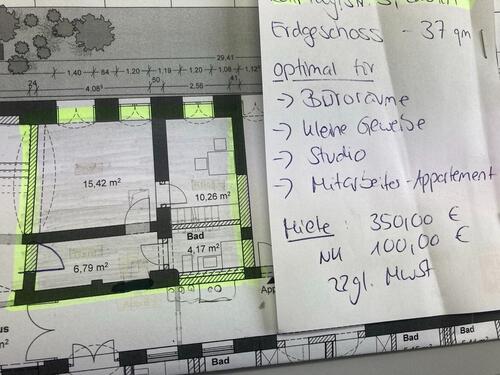 Erdgeschoss - 37 qm
optimal für
-> Büroräume
-> kleine Gewerbe
-> Studio
-> Mitarbeiter-Appartement
Miete: 350,00 €
NK 100,00 €
zzgl. MwSt
29,41
24
1,40
84
1,20
1,19
1,20
1,08
1,12⁵
4,08⁵
50
2,56
41
15,42 m²
10,26 m²
Bad
4,17 m²
6,79 m²
App
us
m²
Bad
Bad
Bad